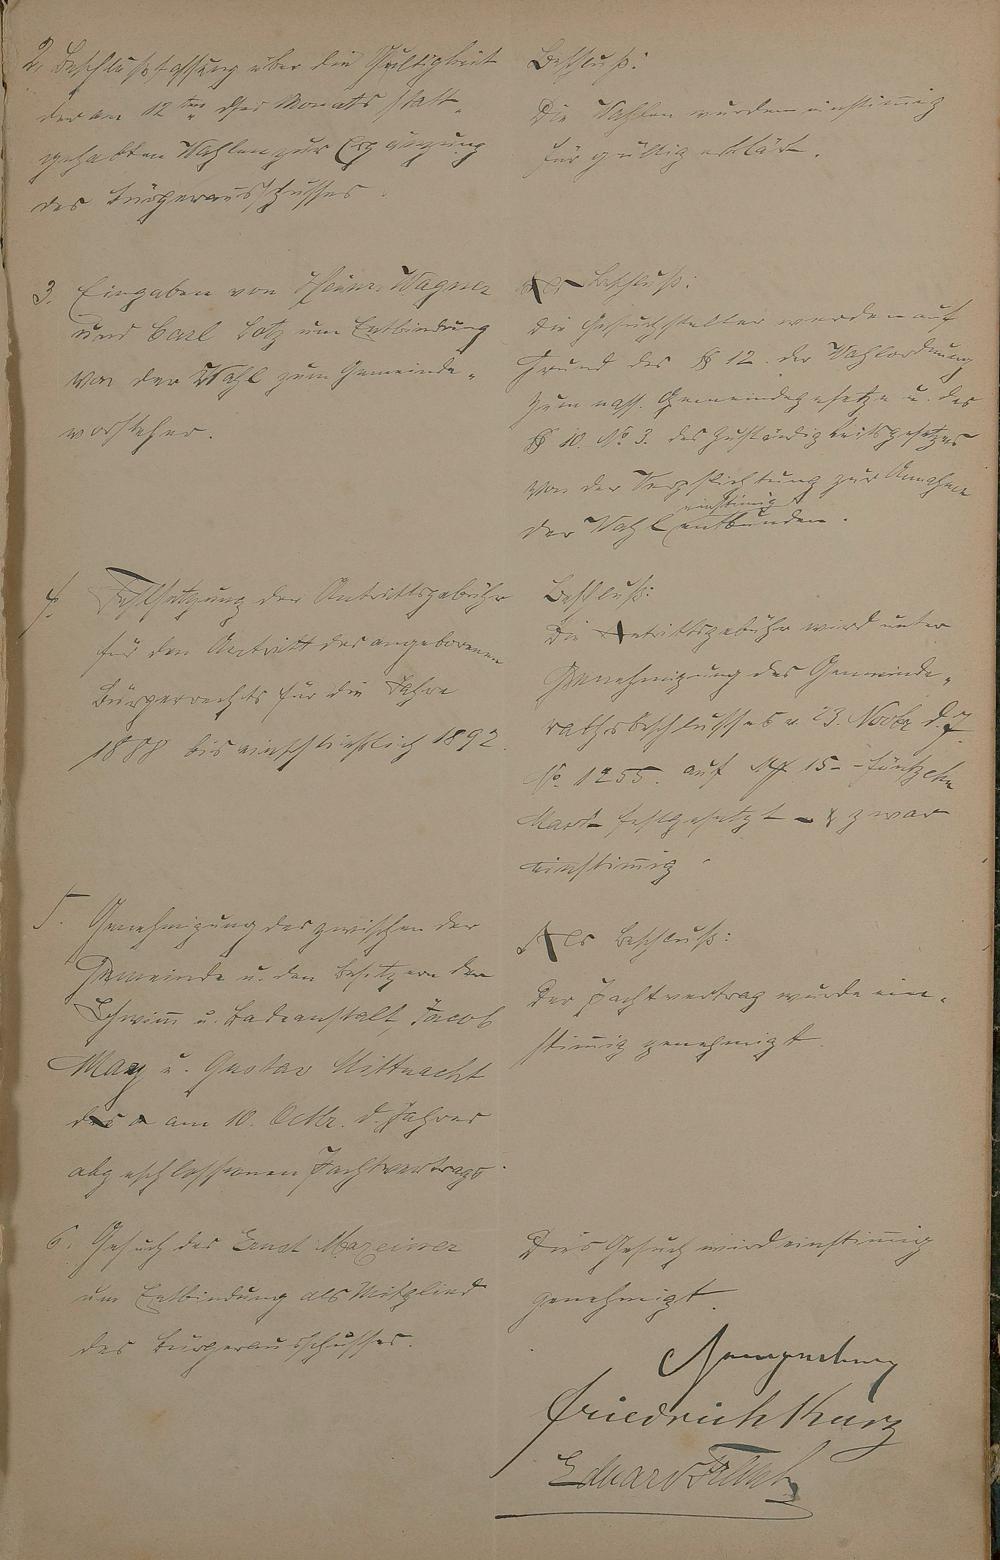 2. Beschlußfassung über die Gültigkeit
der am 12ten dses Monats statt-
gehabten Wahlen zur Ergänzung
des Bürgerausschusses.
Beschluß:
Die Wahlen wurden einstimig
für gültig erklärt.
3. Eingaben von Wagner
und Carl Lotz um Entbindung
von der Wahl zum Gemeinde-
vorsteher.
Beschluß:
Die Gesuchsteller werden auf
Grund des § 12. der Wahlordnung
zum nass. Gemeindegesetze u. des
§ 10. No 3. des Zuständigkeitsgesetzes
von der Verpflichtung zur Annahme
der Wahl einstimig entbunden.
4. Festsetzung der Antrittsgebühr
für den Antritt des angeborenen
Bürgerrechts für die Jahre
1888 bis einschließlich 1892.
Beschluß:
Die Antrittsgebühr wird unter
Genehmigung des Gemeinde-
rathsbeschlusses v. 23. Novbr d. J.
No. 1255. auf M 15 - fünfzehn
Mark festgesetzt - & zwar
einstimig.
5. Genehmigung des zwischen der
Gemeinde u. den Besitzern der
Schwim u. Badeanstalt Jacob
May u. Gustav Mittnacht
am 10. Octbr. d. Jahres
abgeschlossenen Pachtvertrags.
Als Beschluß:
Der Pachtvertrag wurde ein-
stimig genehmigt.
6. Gesuch des Ernst
um Entbindung als Mitglied
des Bürgerausschusses.
Das Gesuch wird einstimig
genehmigt.
Friedrich Kurz
Eduard